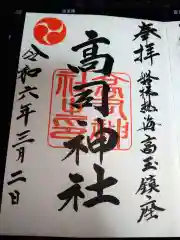 奉拝
磐梯熱海高玉鎮座
高司神社
令和六年三月二日